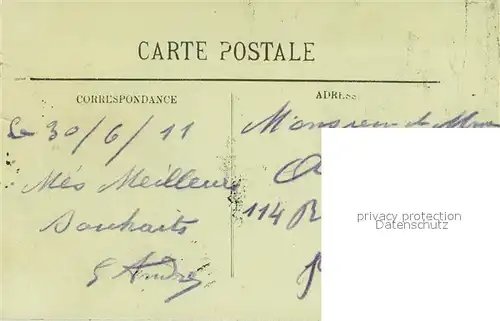 CARTE POSTALE
CORRESPONDANCE
ADRESS
Le 30/6/11
Mes Meilleurs
Souhaits
G André
Monsieur et Mme
114 R
privacy protection
Datenschutz